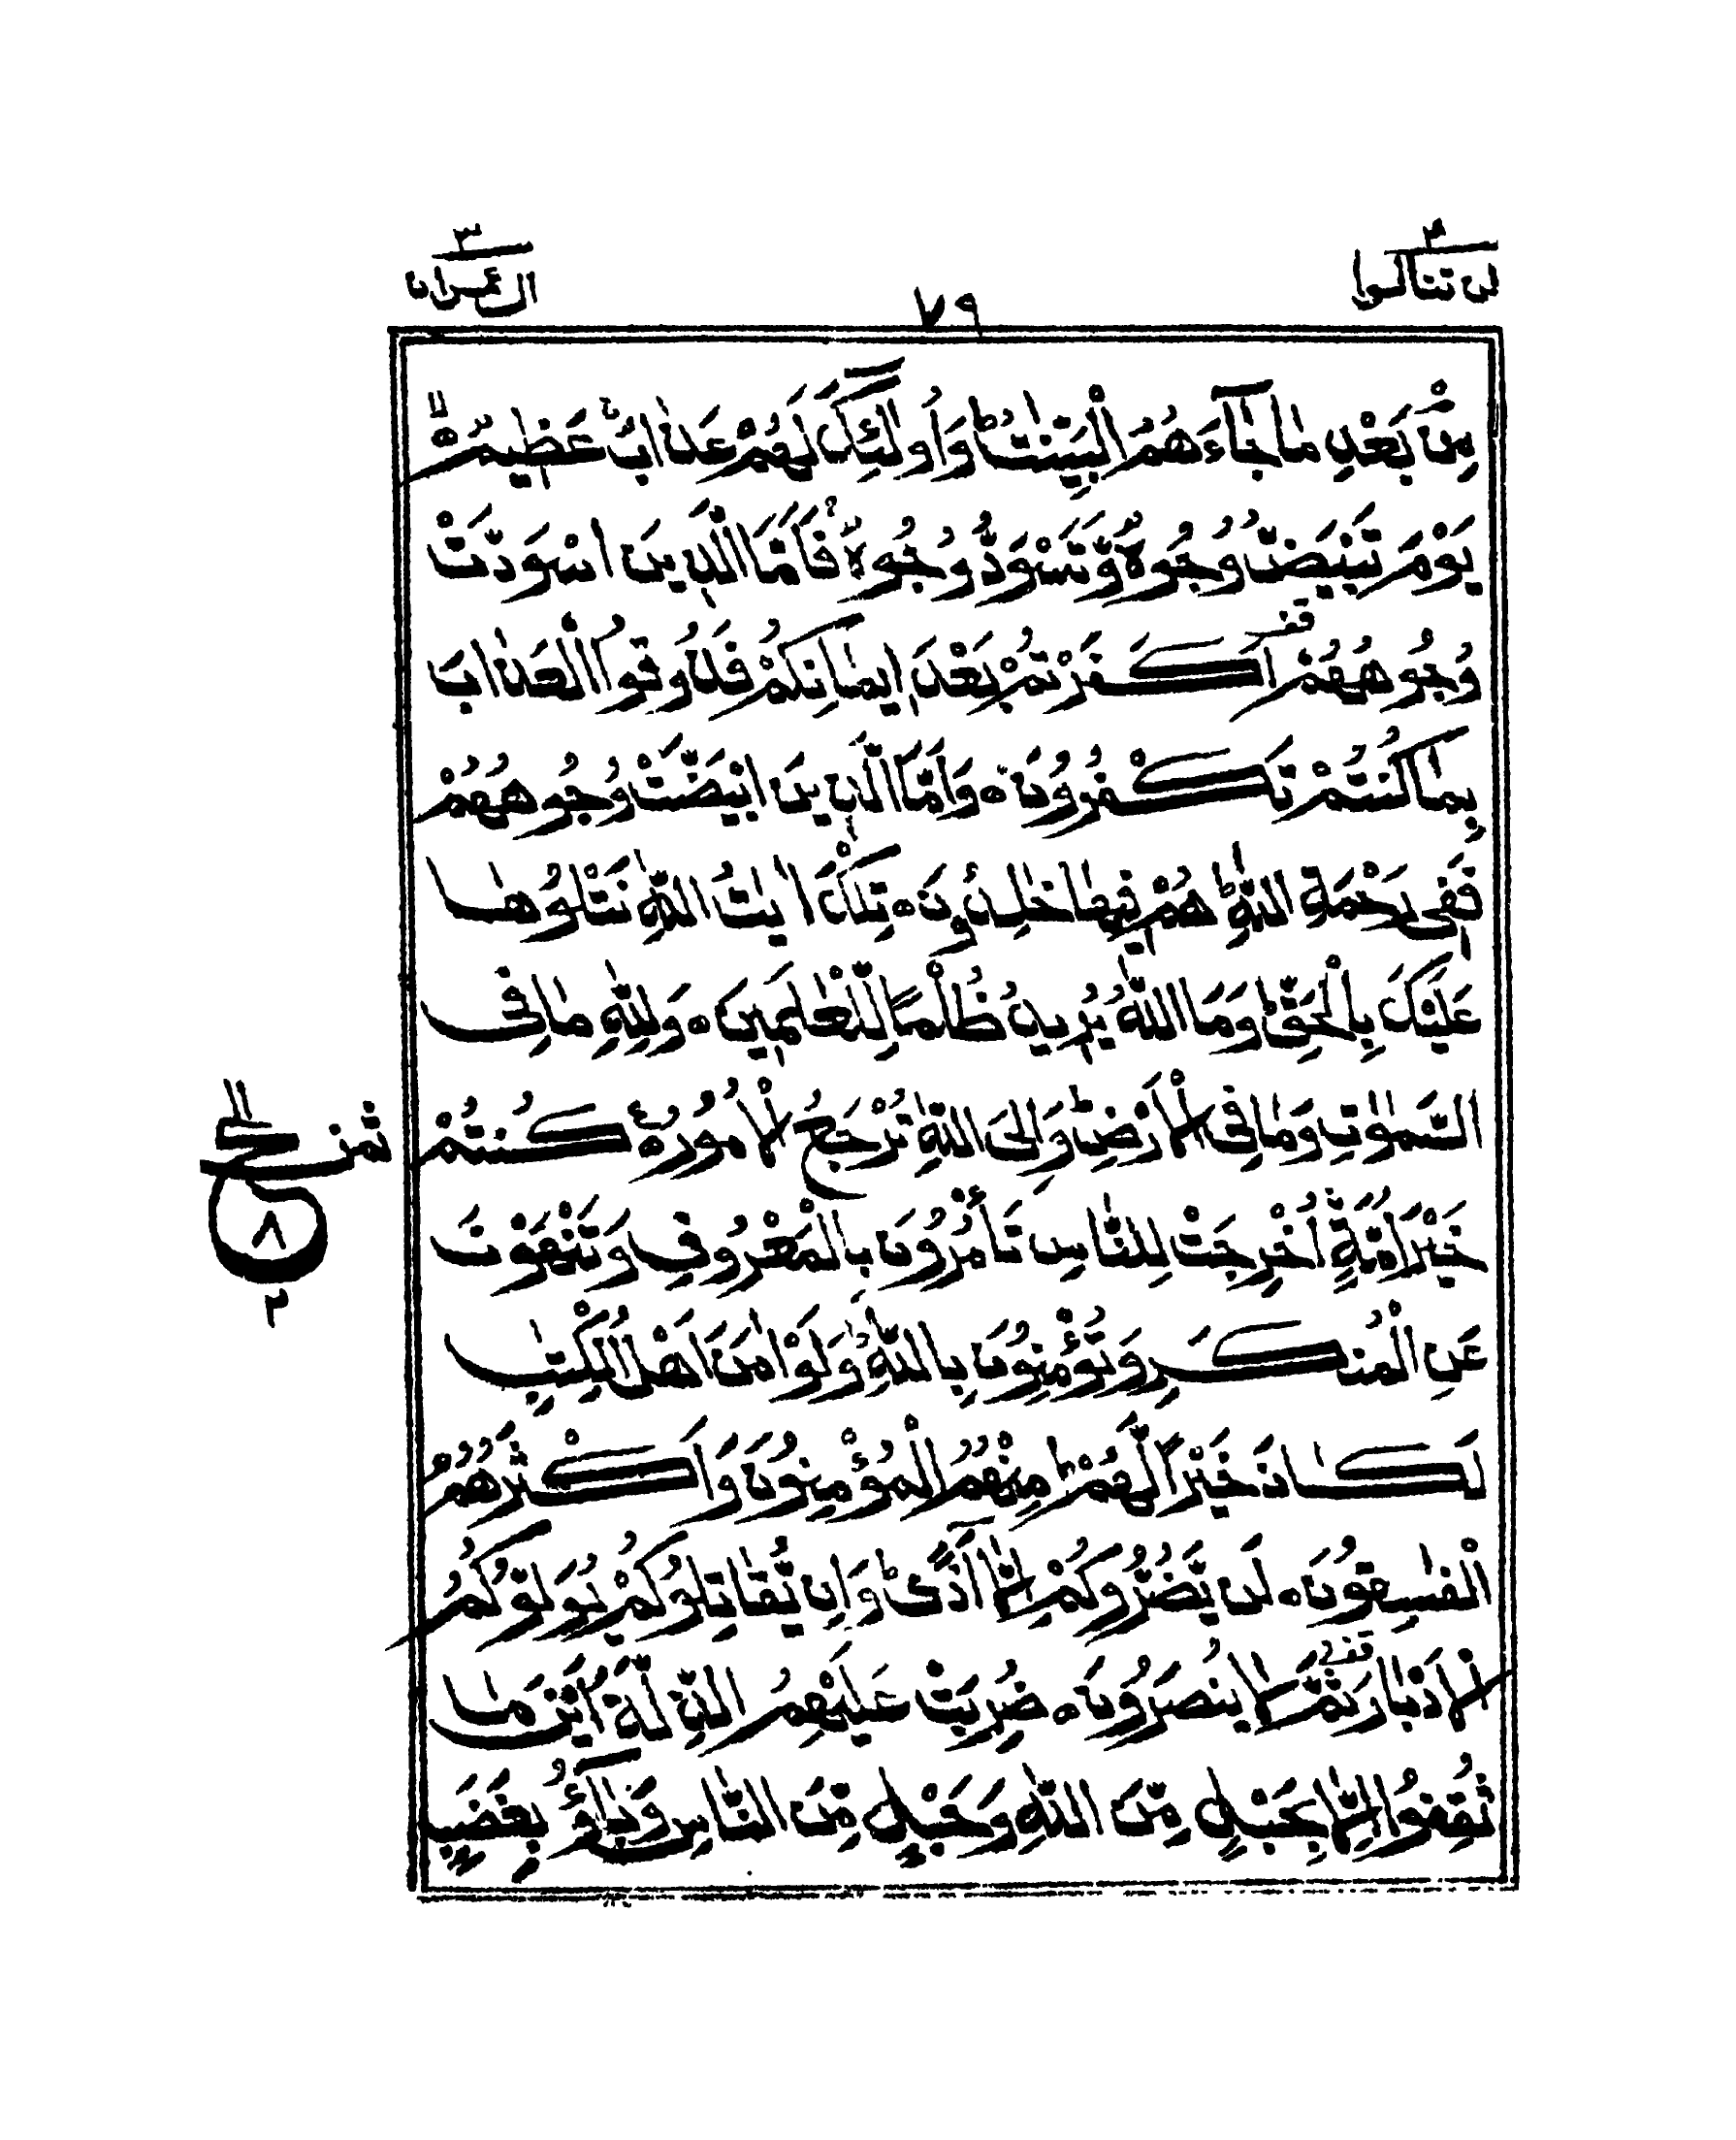 لن تنالوا ٤
٧٩
ال عمران ٣
مِنْۢ بَعْدِ مَا جَآءَهُمُ الْبَيِّنٰتُ ؕ وَاُولٰٓئِكَ لَهُمْ عَذَابٌ عَظِيْمٌ ۙ
يَوْمَ تَبْيَضُّ وُجُوْهٌ وَّتَسْوَدُّ وُجُوْهٌ ۚ فَاَمَّا الَّذِيْنَ اسْوَدَّتْ
وُجُوْهُهُمْ قف اَكَفَرْتُمْ بَعْدَ اِيْمَانِكُمْ فَذُوْقُوا الْعَذَابَ
بِمَا كُنْتُمْ تَكْفُرُوْنَ ۝ وَاَمَّا الَّذِيْنَ ابْيَضَّتْ وُجُوْهُهُمْ
فَفِيْ رَحْمَةِ اللّٰهِ ؕ هُمْ فِيْهَا خٰلِدُوْنَ ۝ تِلْكَ اٰيٰتُ اللّٰهِ نَتْلُوْهَا
عَلَيْكَ بِالْحَقِّ ؕ وَمَا اللّٰهُ يُرِيْدُ ظُلْمًا لِّلْعٰلَمِيْنَ ۝ وَلِلّٰهِ مَا فِي
السَّمٰوٰتِ وَمَا فِي الْاَرْضِ ؕ وَاِلَى اللّٰهِ تُرْجَعُ الْاُمُوْرُ ۝ كُنْتُمْ
ثمن
ع
٨
٢
خَيْرَ اُمَّةٍ اُخْرِجَتْ لِلنَّاسِ تَاْمُرُوْنَ بِالْمَعْرُوْفِ وَتَنْهَوْنَ
عَنِ الْمُنْكَرِ وَتُؤْمِنُوْنَ بِاللّٰهِ ؕ وَلَوْ اٰمَنَ اَهْلُ الْكِتٰبِ
لَكَانَ خَيْرًا لَّهُمْ ؕ مِنْهُمُ الْمُؤْمِنُوْنَ وَاَكْثَرُهُمُ
الْفٰسِقُوْنَ ۝ لَنْ يَّضُرُّوْكُمْ اِلَّآ اَذًى ؕ وَاِنْ يُّقَاتِلُوْكُمْ يُوَلُّوْكُمُ
الْاَدْبَارَ قف ثُمَّ لَا يُنْصَرُوْنَ ۝ ضُرِبَتْ عَلَيْهِمُ الذِّلَّةُ اَيْنَ مَا
ثُقِفُوْٓا اِلَّا بِحَبْلٍ مِّنَ اللّٰهِ وَحَبْلٍ مِّنَ النَّاسِ وَبَآءُوْ بِغَضَبٍ